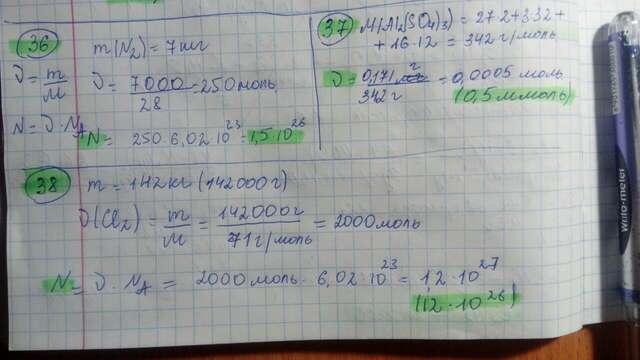 36 m(N₂) = 7кг
ν = m/M ν = 7000/28 = 250 моль
N = ν · N_A N = 250 · 6,02 · 10²³ = 1,5 · 10²⁶
37 M(Al₂(SO₄)₃) = 27·2 + 3·32 +
+ 16·12 = 342 г/моль
ν = 0,171 г/342 г = 0,0005 моль
(0,5 ммоль)
38 m = 142 кг (142000 г)
ν(Cl₂) = m/M = 142000г/71г/моль = 2000 моль
N = ν · N_A = 2000 моль · 6,02 · 10²³ = 1,2 · 10²⁷
(12 · 10²⁶)
Write-o-meter